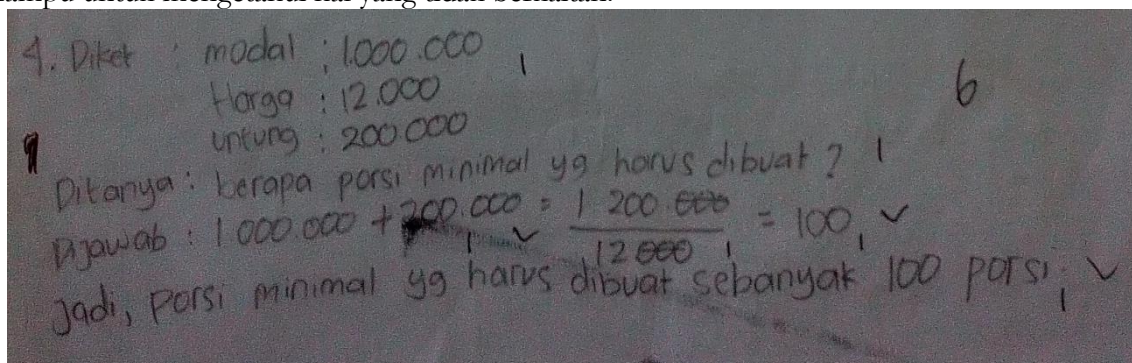 4. Diket : modal : 1.000.000 1
Harga : 12.000
untung : 200.000
6
Ditanya : berapa porsi minimal yg harus dibuat ? 1
Dijawab : 1 000.000 + 200.000 = 1 200.000 / 12 000 = 100 ✓
Jadi, porsi minimal yg harus dibuat sebanyak 100 porsi. ✓